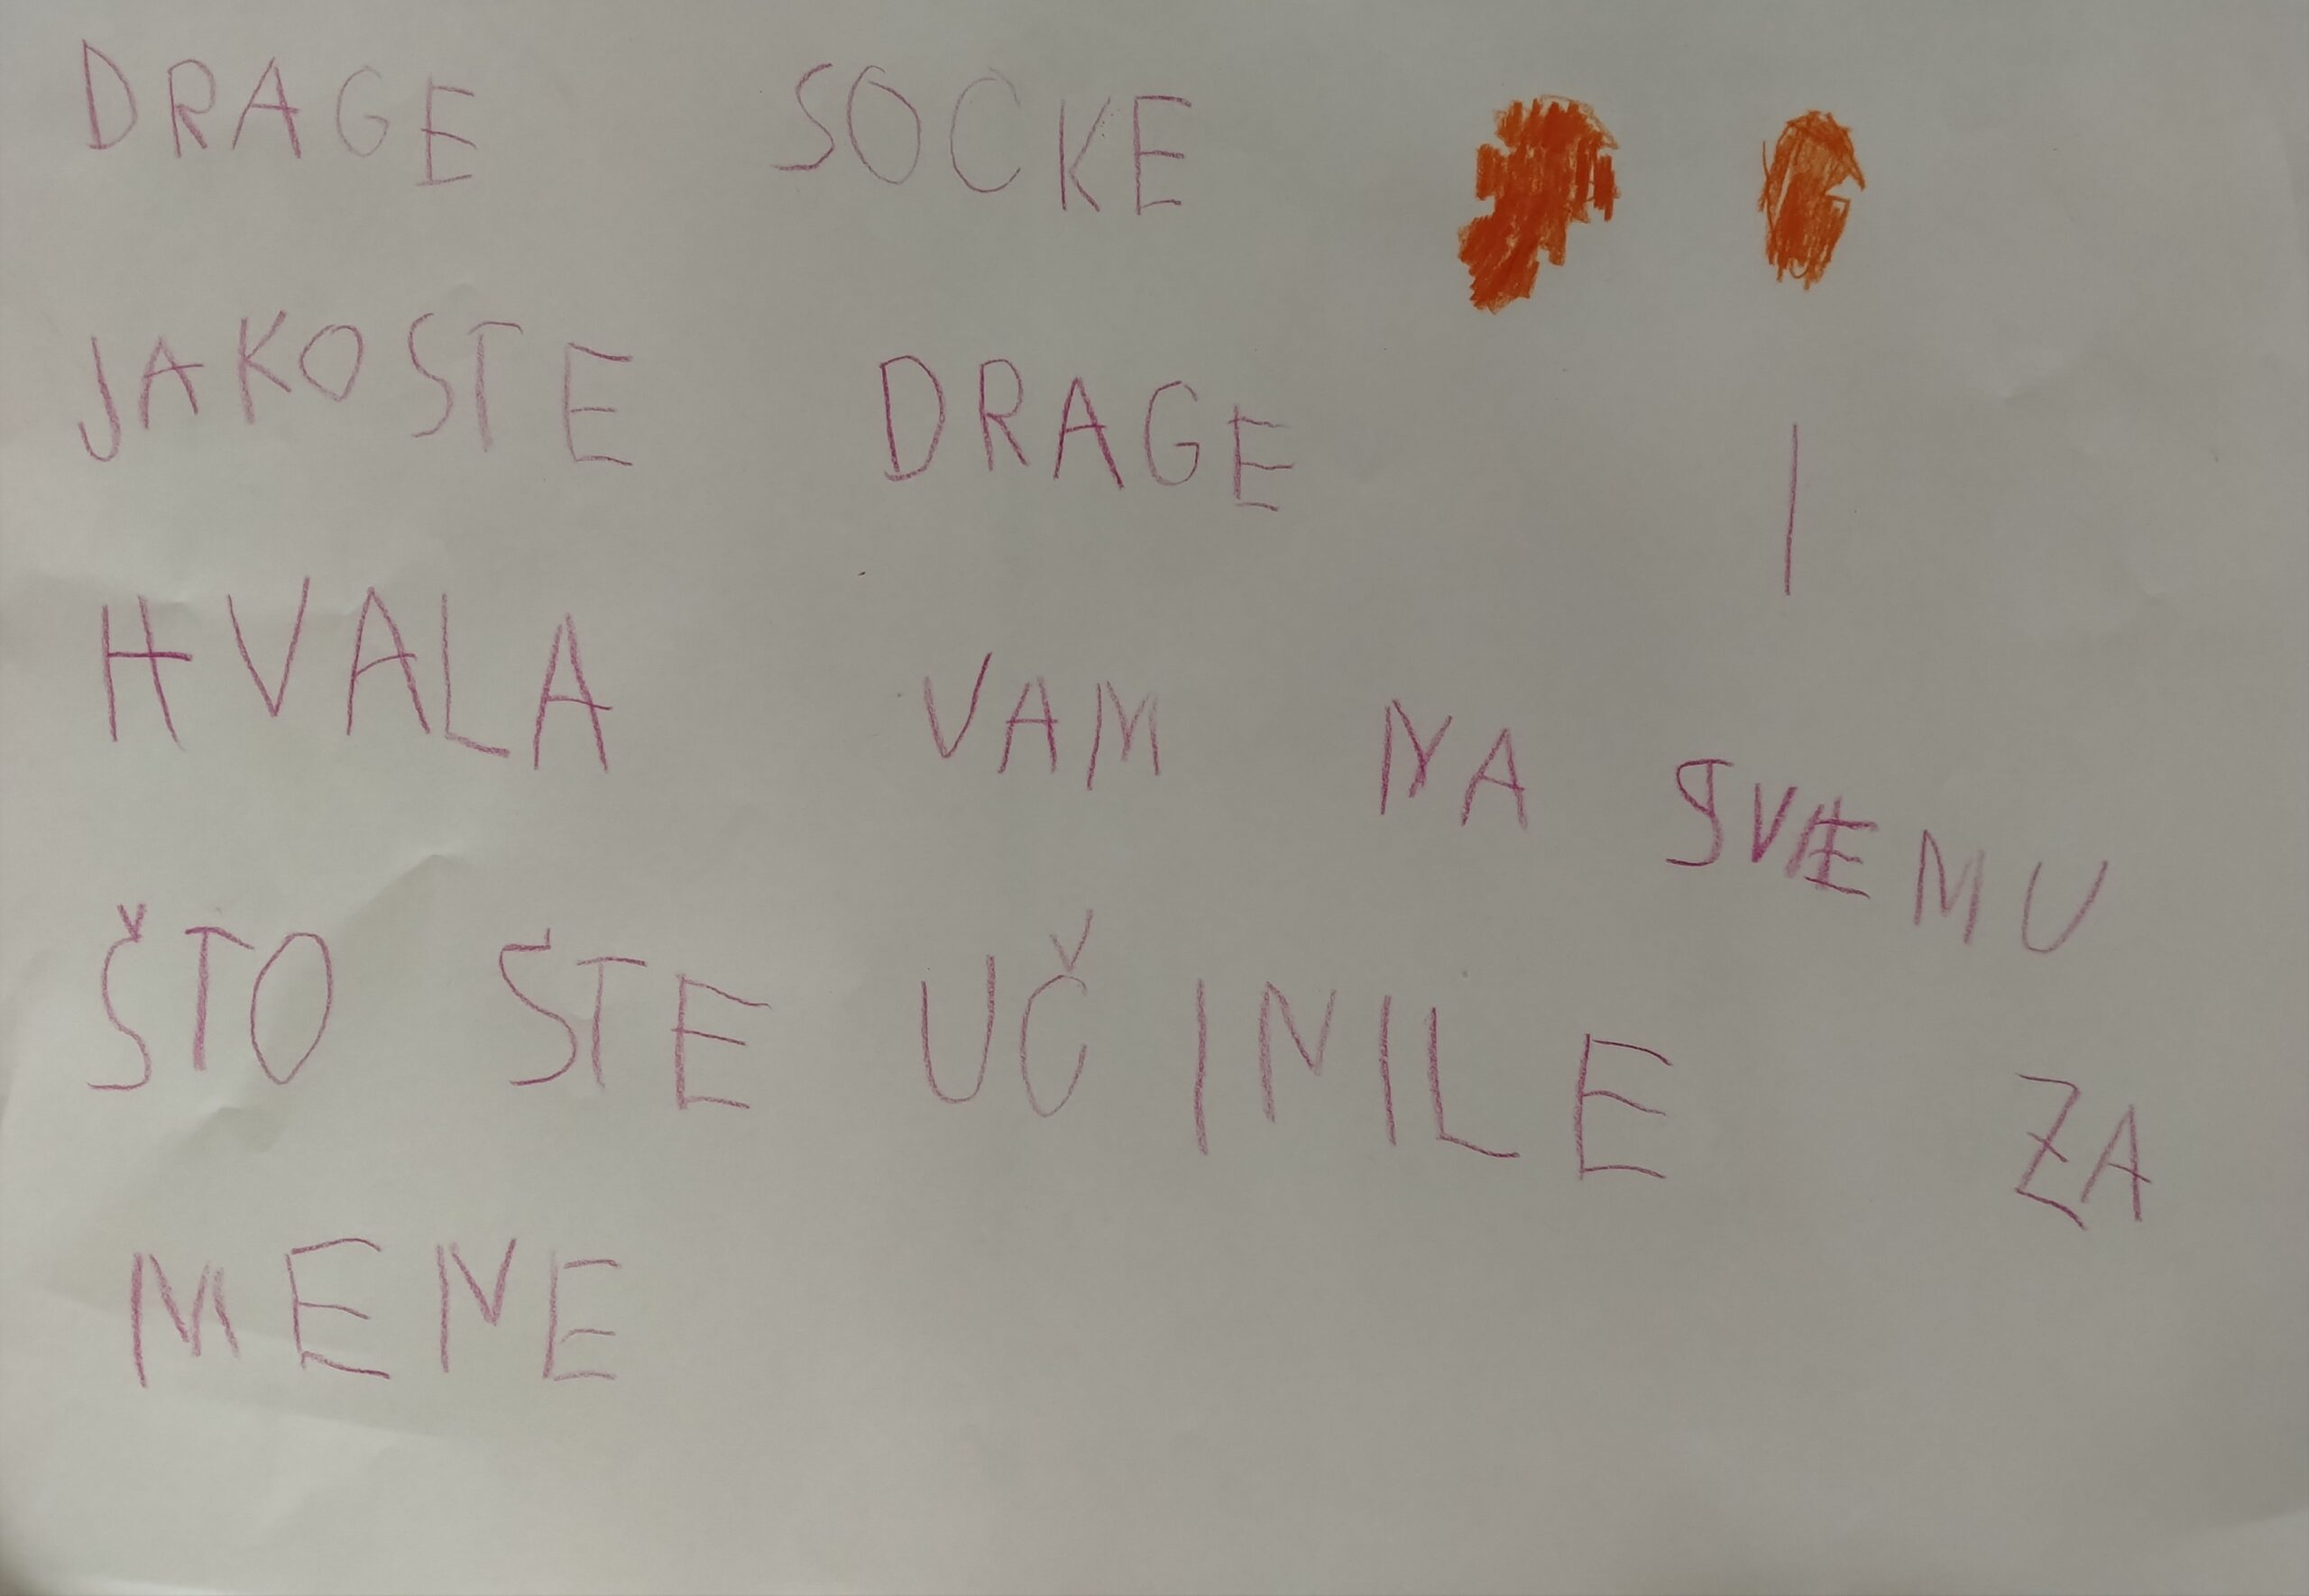 DRAGE SOCKE
JAKO STE DRAGE I
HVALA VAM NA SVEMU
ŠTO STE UČINILE ZA
MENE